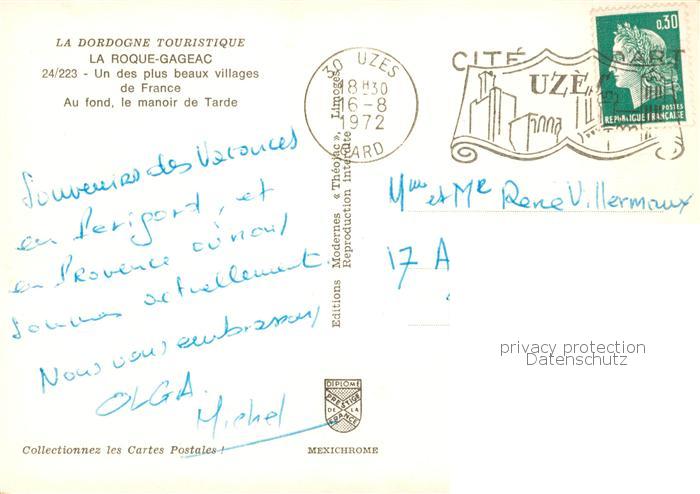 LA DORDOGNE TOURISTIQUE
LA ROQUE-GAGEAC
24/223 - Un des plus beaux villages
de France
Au fond, le manoir de Tarde
30 UZES
18H30
16-8
1972
GARD
CITÉ D'ART
UZÈS
0,30
POSTES
REPUBLIQUE FRANÇAISE
Souvenirs des Vacances
en Perigord, et
en Provence où nous
sommes actuellement
Nous vous embrassons
OLGA.
Michel
Editions Modernes « Théojac », Limoges
Reproduction interdite
Mme et Mr René Villermaux
17 A
privacy protection
Datenschutz
DIPLOME
PRESTIGE
DE LA
FRANCE
Collectionnez les Cartes Postales !
MEXICHROME